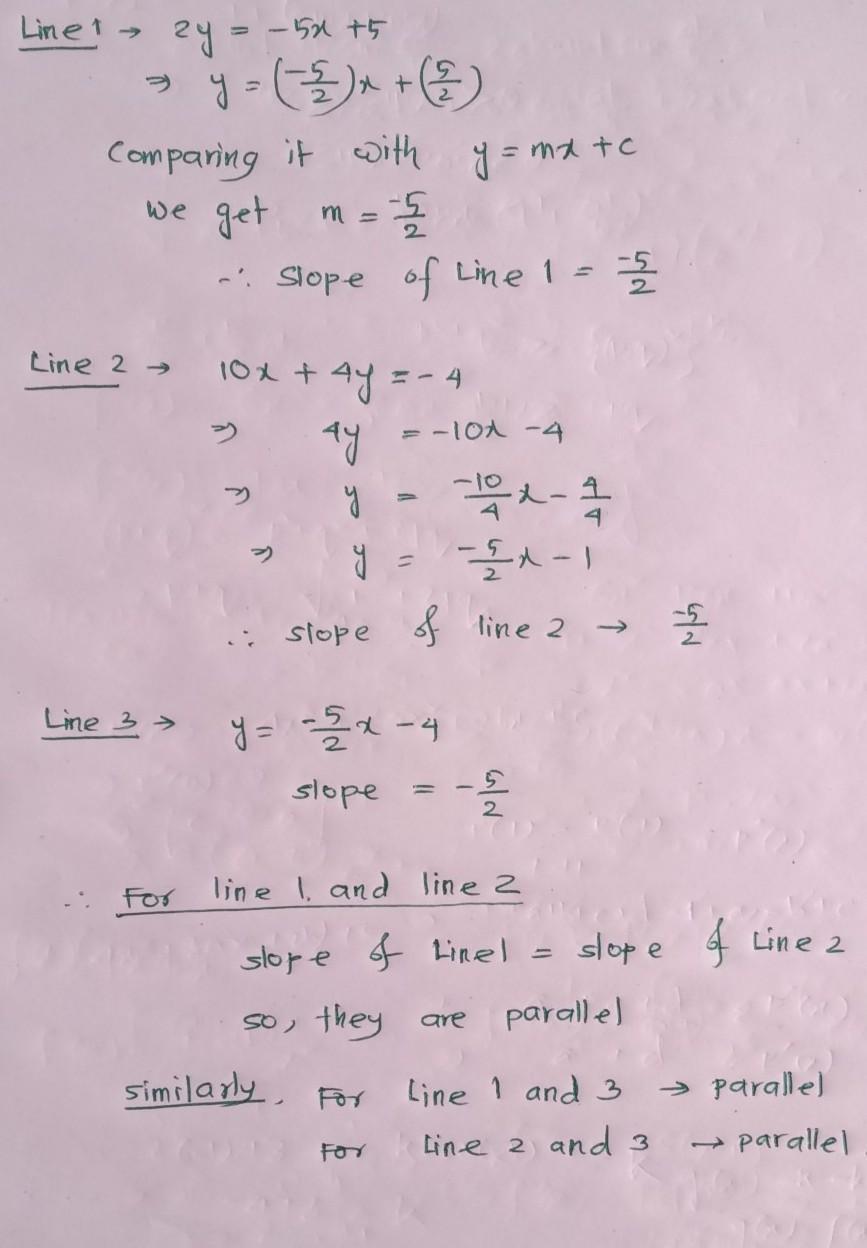 Line 1 → 2y = -5x +5
⇒ y = (-5/2)x + (5/2)
Comparing it with y = mx + c
we get m = -5/2
∴ Slope of Line 1 = -5/2
Line 2 → 10x + 4y = -4
⇒ 4y = -10x -4
⇒ y = -10/4 x - 4/4
⇒ y = -5/2 x - 1
∴ slope of line 2 → -5/2
Line 3 → y = -5/2 x - 4
slope = -5/2
∴ For line 1. and line 2
slope of Line 1 = slope of Line 2
so, they are parallel
similarly, For Line 1 and 3 → parallel
For Line 2 and 3 → parallel